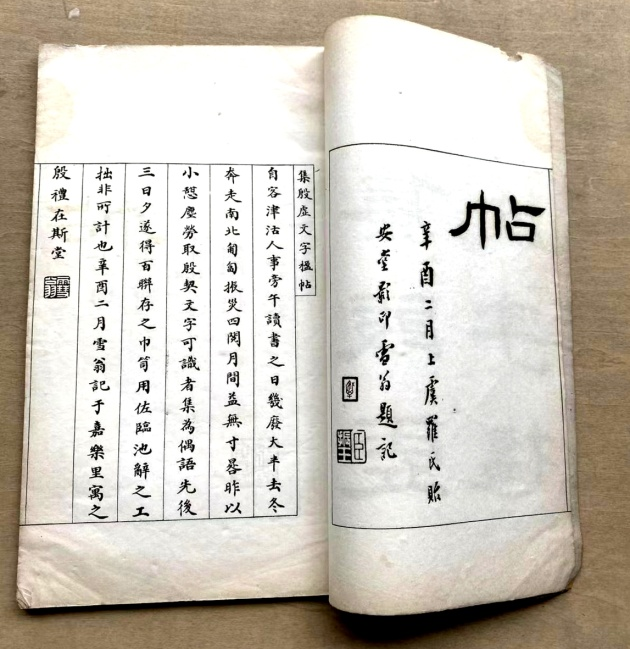 帖
辛酉二月上虞羅氏貽
安堂影印雪翁題記
集殷虛文字楹帖
自客津沽人事旁午讀書之日幾廢大半去冬
奔走南北匍匐振災四閱月間益無寸晷昨以
小憩塵勞取殷契文字可識者集為偶語先後
三日夕遂得百聯存之巾笥用佐臨池辭之工
拙非所計也辛酉二月雪翁記于嘉樂里寓之
殷禮在斯堂